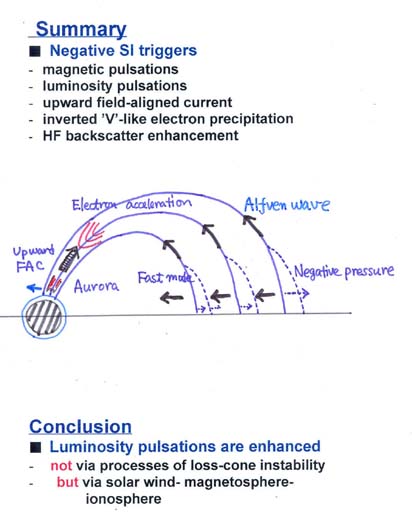 Summary
■ Negative SI triggers
- magnetic pulsations
- luminosity pulsations
- upward field-aligned current
- inverted 'V'-like electron precipitation
- HF backscatter enhancement
Electron acceleration
Alfven wave
Upward
FAC
Aurora
Fast mode
Negative pressure
Conclusion
■ Luminosity pulsations are enhanced
- not via processes of loss-cone instability
- but via solar wind- magnetosphere-
ionosphere